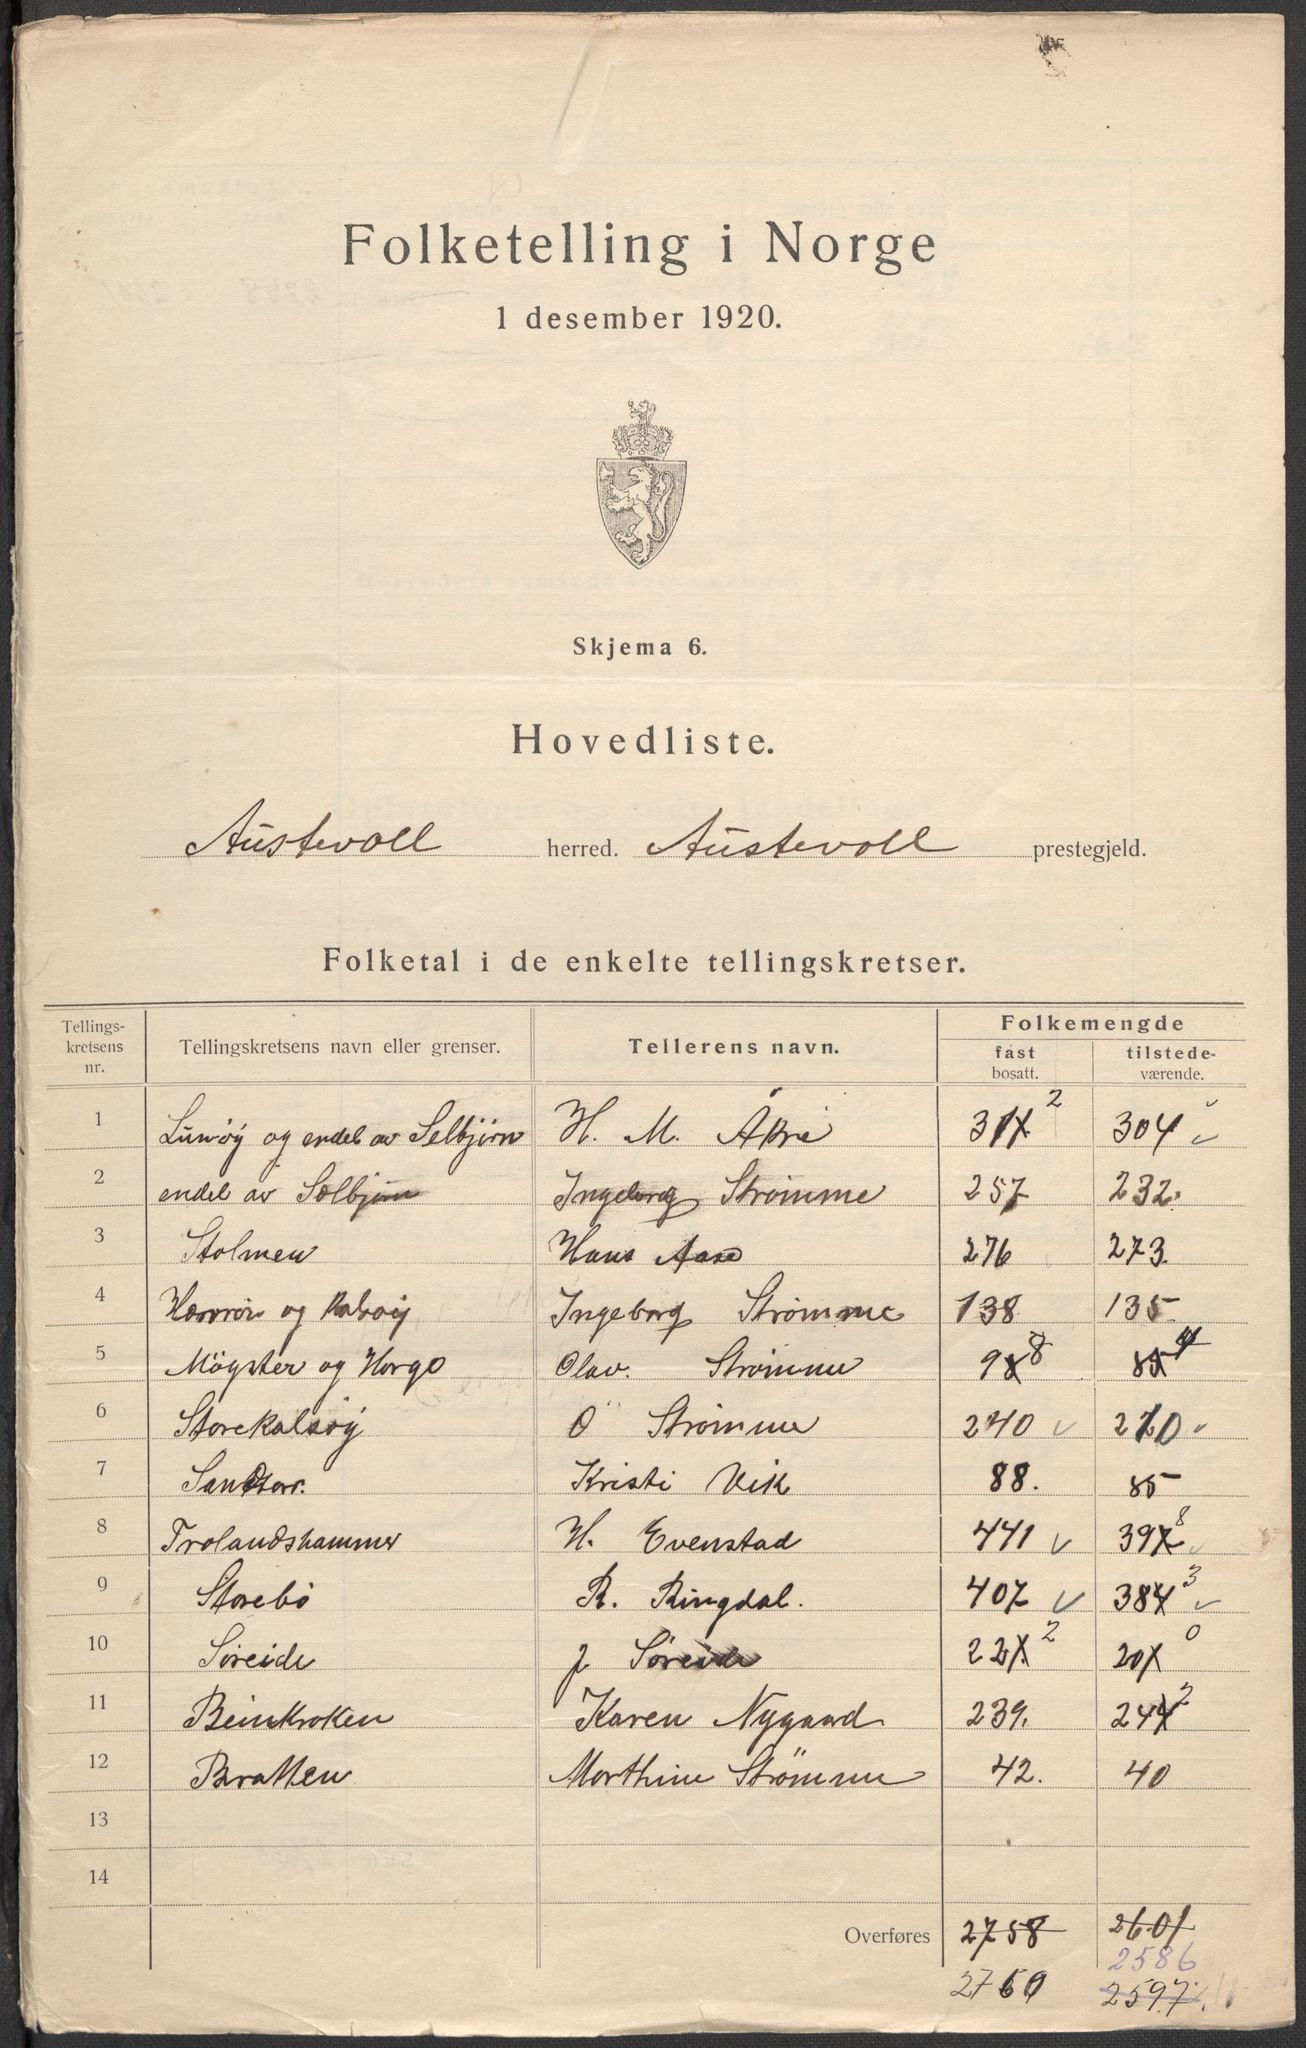 Folketelling i Norge
1 desember 1920.
Skjema 6.
Hovedliste.
Austevoll herred. Austevoll prestegjeld.
Folketal i de enkelte tellingskretser.
Tellings-kretsens nr. Tellingskretsens navn eller grenser. Tellerens navn. Folkemengde
fast bosatt. tilstede-værende.
1 og endel av Selbjørn H. M. Åkre 312 304
2 endel av Selbjørn Ingeborg Strømme 257 232
3 Stolmen Hans Aase 276 273
4 og Kalvøy Ingeborg Strømme 138 135
5 Møgster og Horge Olav Strømme 98 84
6 Storekalsøy O Strømme 240 210
7 Kristi Vik 88. 85
8 Trolandshammer H. Evenstad 441 398
9 Storebø R. Ringdal. 407 383
10 Søreide J Søreide 222 200
11 Beinkroken Karen Nygaard 239. 242
12 Bratten Morthine Strømme 42. 40
13
14
Overføres 2758 2601
2586
2760 2597